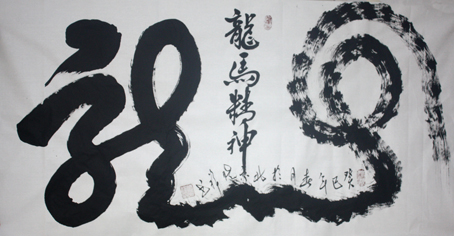 龍
龍馬精神
癸巳年春月於北京